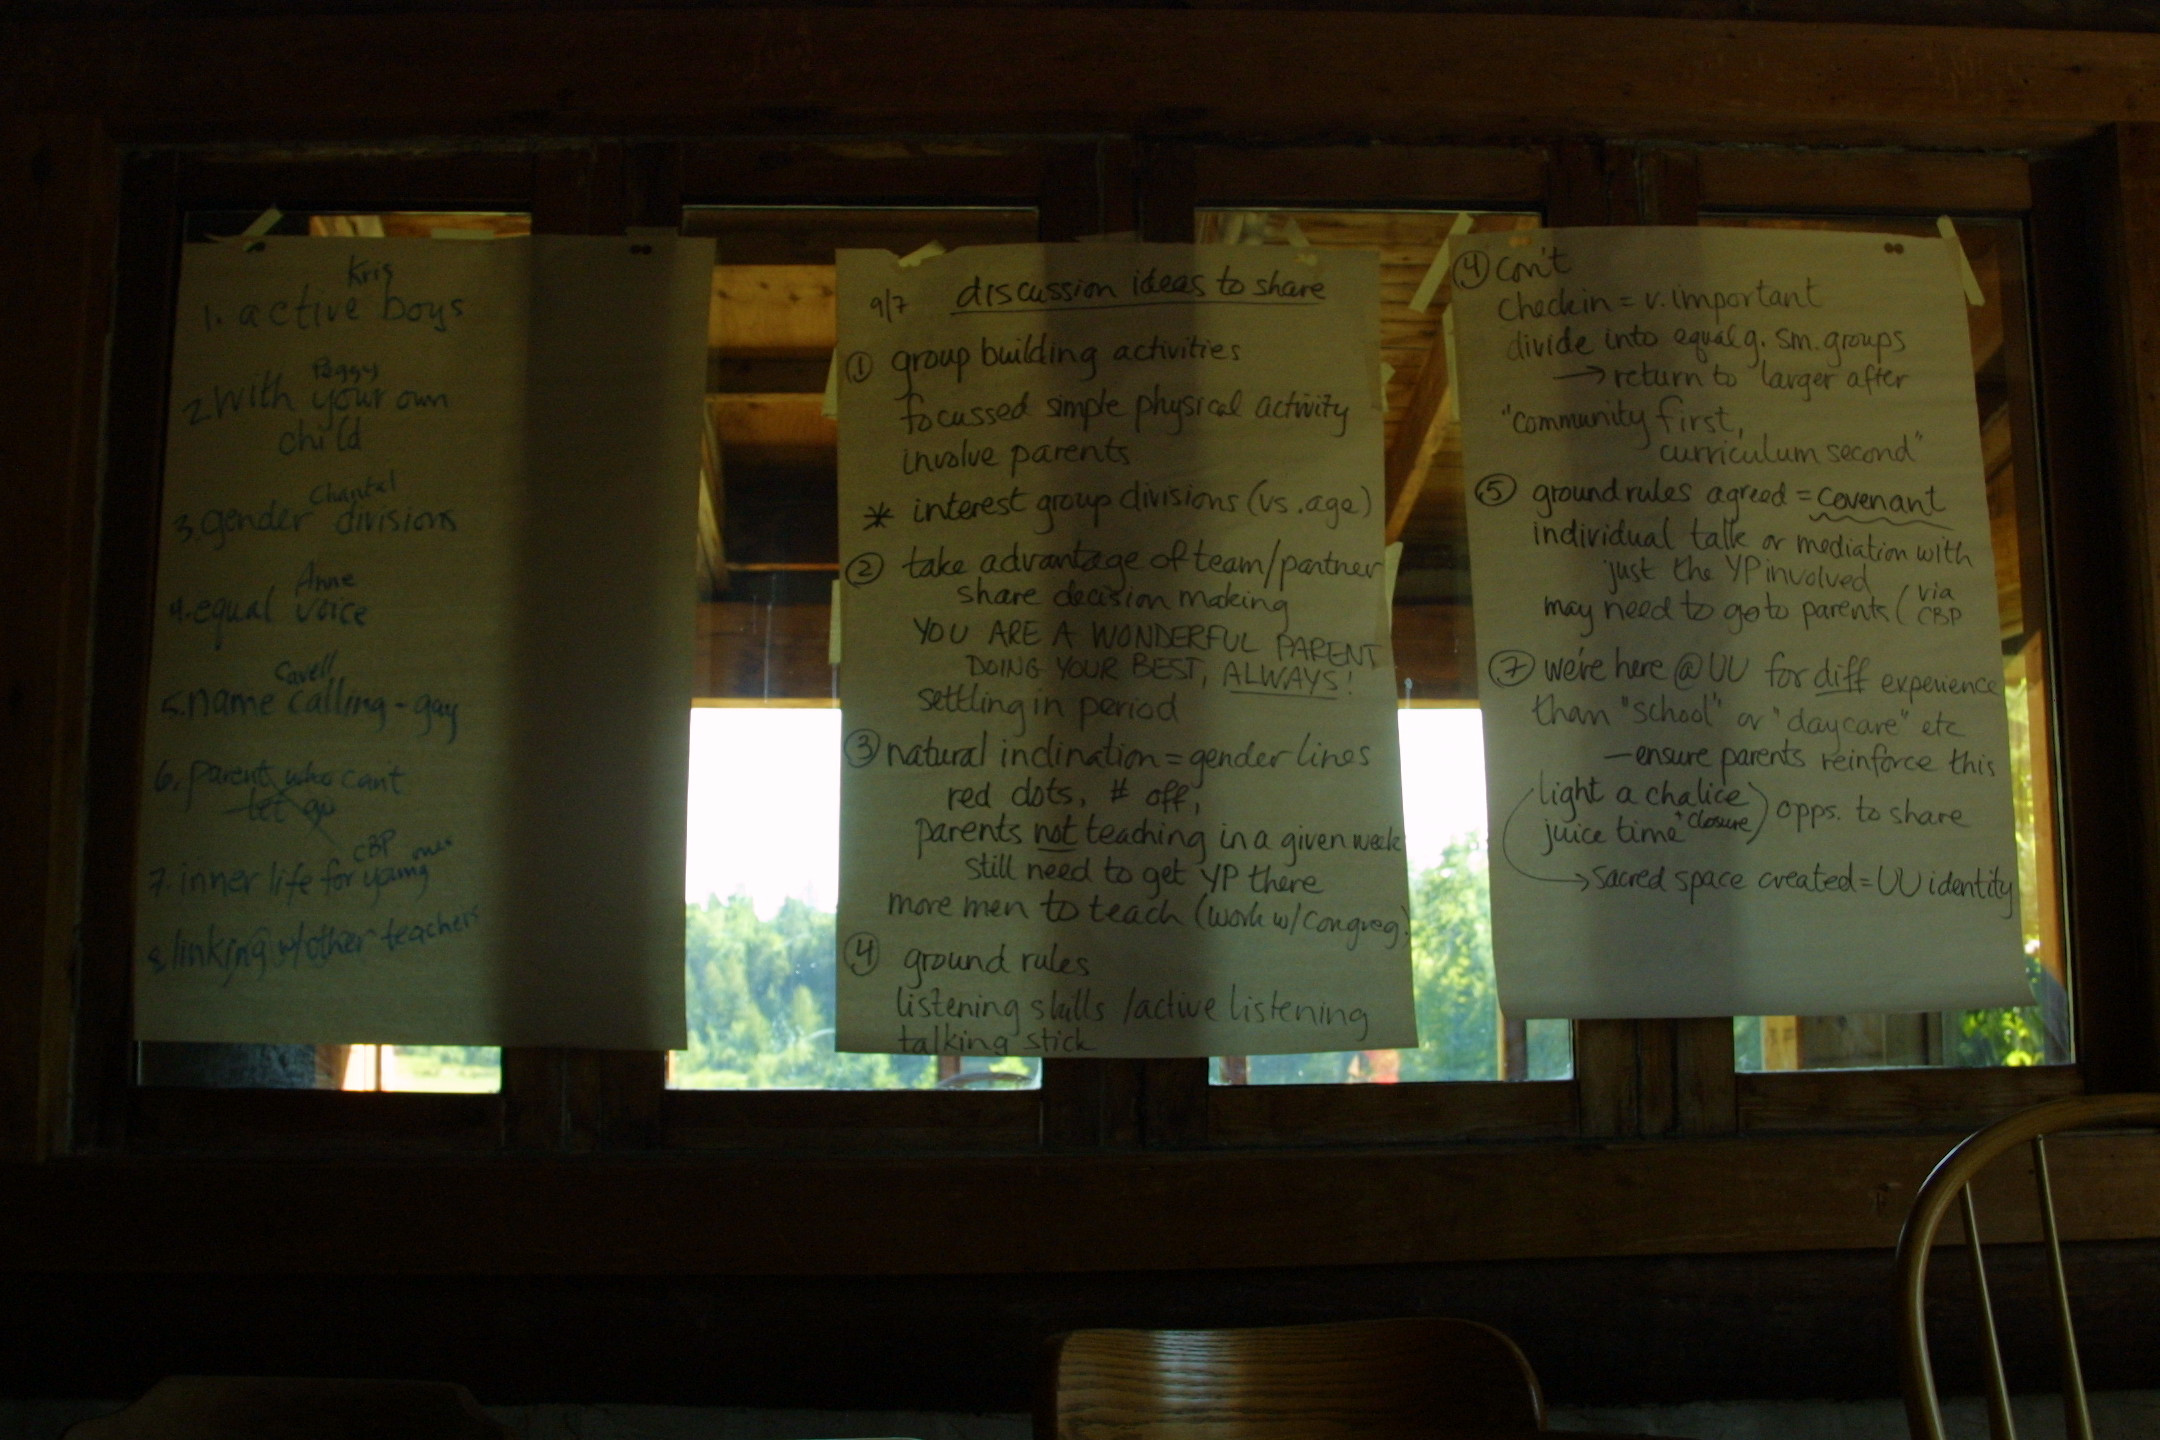 Kris
1. active boys
Peggy
2. With your own
child
Chantal
3. gender divisions
Anne
4. equal voice
Cavell
5. name calling - gay
6. parent who can't
let go
CBP ones
7. inner life for young
8 linking w/other teachers
9/7 discussion ideas to share
① group building activities
focussed simple physical activity
involve parents
* interest group divisions (vs. age)
② take advantage of team/partner
share decision making
YOU ARE A WONDERFUL PARENT
DOING YOUR BEST, ALWAYS!
settling in period
③ natural inclination = gender lines
red dots, # off,
parents not teaching in a given week
still need to get YP there
more men to teach (work w/congreg)
④ ground rules
listening skills /active listening
talking stick
④ con't
checkin = v. important
divide into equal g. sm. groups
→ return to larger after
"community first,
curriculum second"
⑤ ground rules agreed = covenant
individual talk or mediation with
just the YP involved
may need to go to parents (via
CBP
⑦ we're here @ UU for diff experience
than "school" or "daycare" etc
—ensure parents reinforce this
light a chalice
juice time "closure) opps. to share
→ sacred space created = UU identity